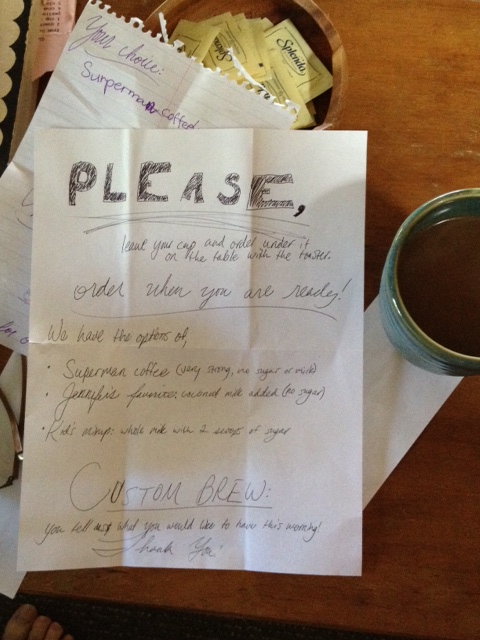 Your choice:
Surperman coffee
Splenda
PLEASE,
leave your cup and order under it
on the table with the toaster.
order when you are ready!
We have the options of,
• Superman coffee (very strong, no sugar or milk)
• Jennifer's favorite: coconut milk added (no sugar)
• Rod's mixup: whole milk with 2 scoops of sugar
CUSTOM BREW:
you tell us what you would like to have this morning!
Thank You!